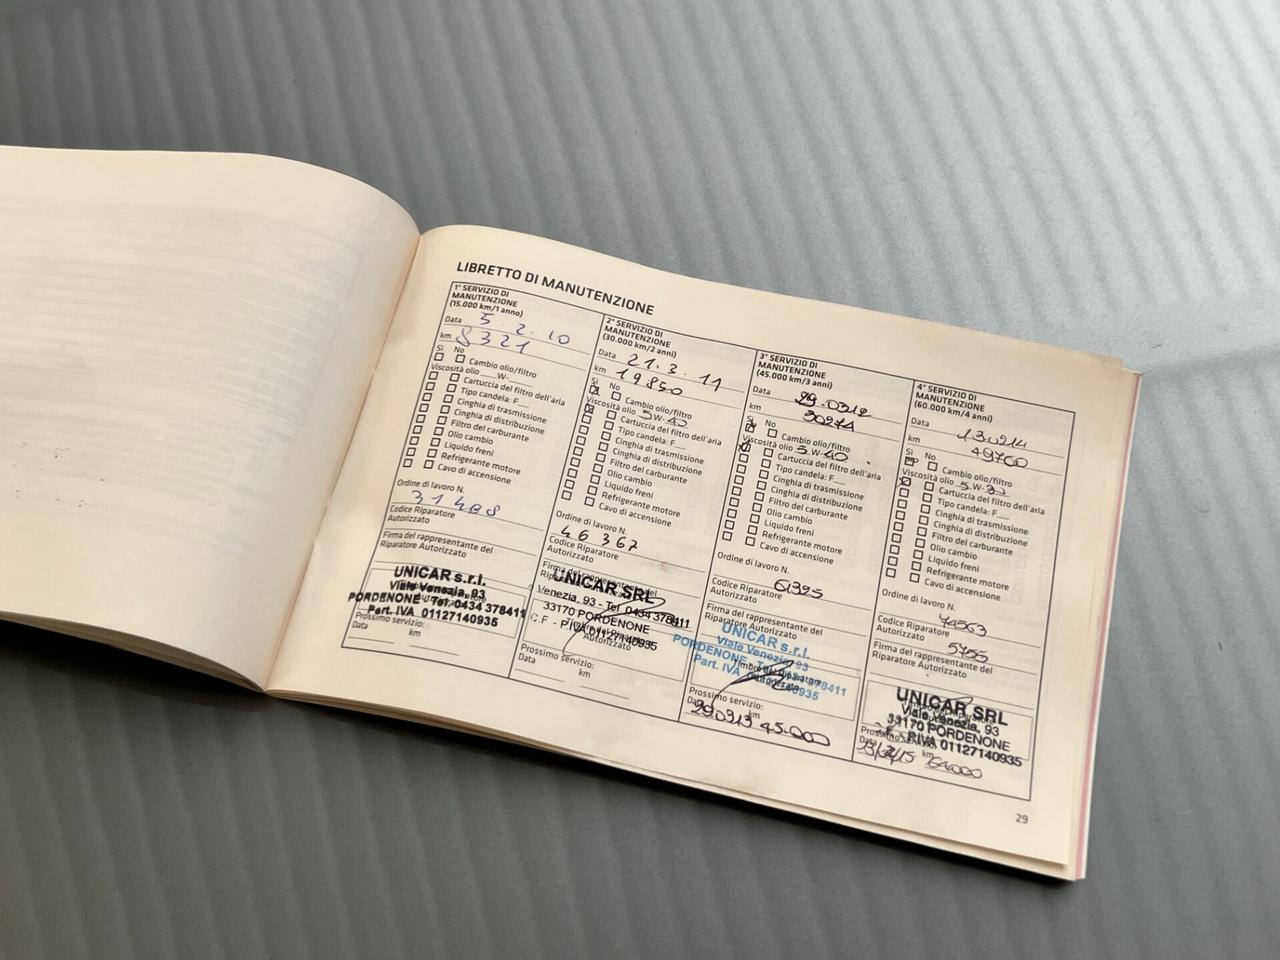 LIBRETTO DI MANUTENZIONE
1° SERVIZIO DI
MANUTENZIONE
(15.000 km/1 anno)
Data 5 2. 10
km 8321
Sì No
Cambio olio/filtro
Viscosità olio __W-__
Cartuccia del filtro dell'aria
Tipo candela: F__
Cinghia di trasmissione
Cinghia di distribuzione
Filtro del carburante
Olio cambio
Liquido freni
Refrigerante motore
Cavo di accensione
Ordine di lavoro N.
31408
Codice Riparatore
Autorizzato
Firma del rappresentante del
Riparatore Autorizzato
UNICAR s.r.l.
Viale Venezia, 93
PORDENONE - Tel. 0434 378411
Part. IVA 01127140935
Prossimo servizio:
Data km
2° SERVIZIO DI
MANUTENZIONE
(30.000 km/2 anni)
Data 21.3.11
km 19850
Sì No
Cambio olio/filtro
Viscosità olio 5W-40
Cartuccia del filtro dell'aria
Tipo candela: F__
Cinghia di trasmissione
Cinghia di distribuzione
Filtro del carburante
Olio cambio
Liquido freni
Refrigerante motore
Cavo di accensione
Ordine di lavoro N.
46367
Codice Riparatore
Autorizzato
Firma del rappresentante del
UNICAR SRL
Venezia, 93 - Tel. 0434 378411
33170 PORDENONE
C.F - P.IVA 01127140935
Autorizzato
Prossimo servizio:
Data km
3° SERVIZIO DI
MANUTENZIONE
(45.000 km/3 anni)
Data 29.0312
km 30274
Sì No
Cambio olio/filtro
Viscosità olio 5W-40
Cartuccia del filtro dell'aria
Tipo candela: F__
Cinghia di trasmissione
Cinghia di distribuzione
Filtro del carburante
Olio cambio
Liquido freni
Refrigerante motore
Cavo di accensione
Ordine di lavoro N.
61395
Codice Riparatore
Autorizzato
Firma del rappresentante del
Riparatore Autorizzato
UNICAR s.r.l.
Viale Venezia, 93
PORDENONE - Tel. 0434 378411
Part. IVA 01127140935
Prossimo servizio:
Data km
290313 45.000
4° SERVIZIO DI
MANUTENZIONE
(60.000 km/4 anni)
Data 130214
km 49760
Sì No
Cambio olio/filtro
Viscosità olio 5W-30
Cartuccia del filtro dell'aria
Tipo candela: F__
Cinghia di trasmissione
Cinghia di distribuzione
Filtro del carburante
Olio cambio
Liquido freni
Refrigerante motore
Cavo di accensione
Ordine di lavoro N.
Codice Riparatore
Autorizzato
5755
Firma del rappresentante del
Riparatore Autorizzato
UNICAR SRL
Viale Venezia, 93
33170 PORDENONE
P.IVA 01127140935
Data km
64000
29